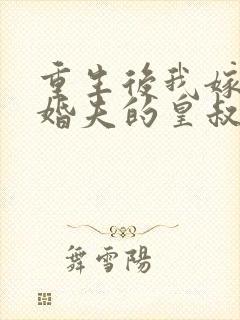 重生後我嫁
婚夫的皇叔
舞雪陽